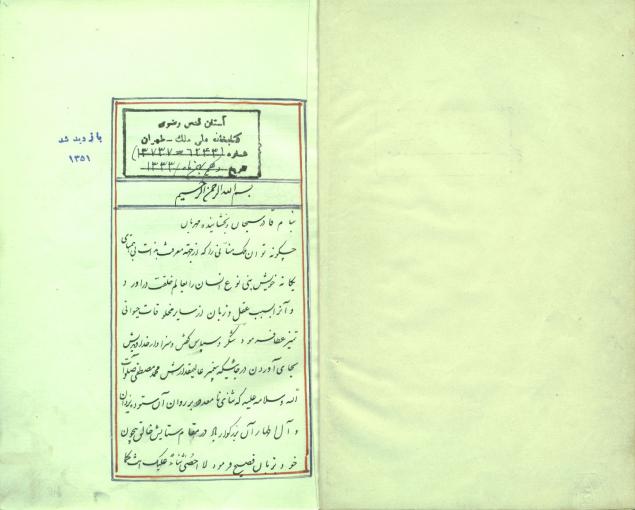 باز دید شد
۱۳۵۱
آستان قدس رضوی
کتابخانه ملی ملک - طهران
شماره
بسم الله الرحمن الرحیم
بنام قادر سبحان و بخشاینده مهربان
چگونه توان را که از جهة معرفت
یکانه خویش بنی نوع انسان را بعالم خلقت در آورد و
و آنرا بسبب عقل و زبان از سایر مخلوقات حیوانی
تمیز عطا فرمود شکر و سپاس
بجای آوردن در جائیکه پیغمبر عالیمقدارش محمد مصطفی صلوات
الله و سلامه علیه که ثنای نا معدود بر روان آن ستوده یزدان
و آل اطهار آن بزرگوار باد در مقام ستایش خالق بیچون
خود بزبان فصیح فرمود لا احصی ثناء علیک انت کما